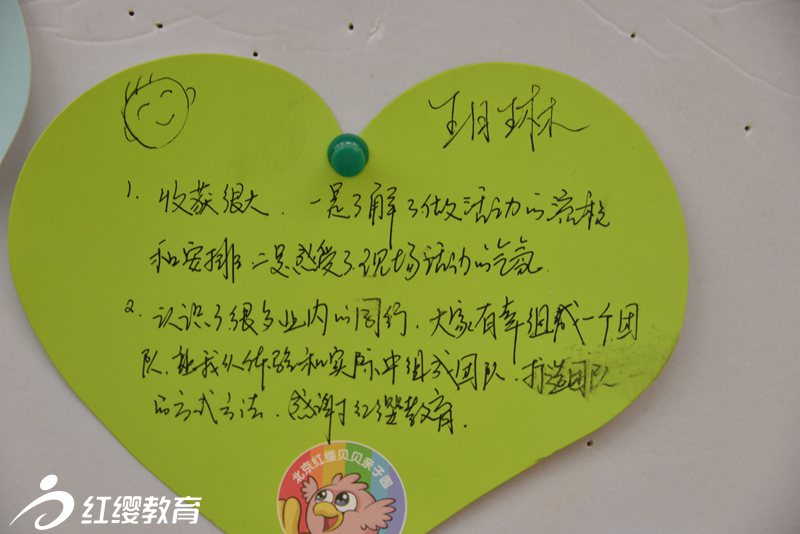 王日琳
1. 收获很大.一是了解了做活动的流程
和安排.二是感受了现场活动的气氛.
2. 认识了很多业内的同行.大家有幸组成一个团
队.让我从体验和实际中组成团队.打造团队
的方式方法.感谢红缨教育.
北京红缨贝贝亲子园
红缨教育